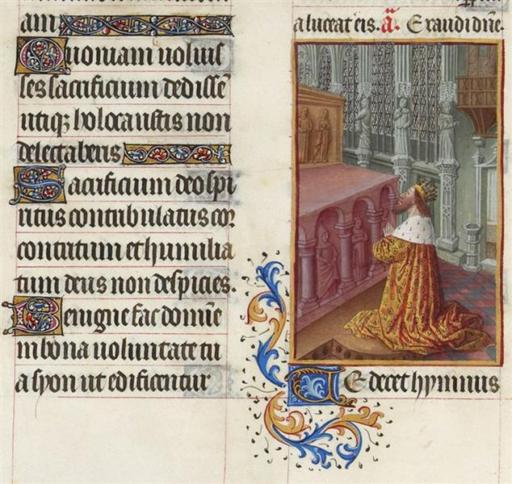 am
Quoniam uoluis
ses sacrificium dedissē
utiq; holocaustis non
delectaberis
Sacrificium deo spi
ritus contribulatus cor
contritum et humilia
tum deus non despicies.
Benigne fac domīe
in bona uoluntate tu
a syon ut edificentur
a luceat eis. a. Exaudi dn̄e.
Te decet hymnus